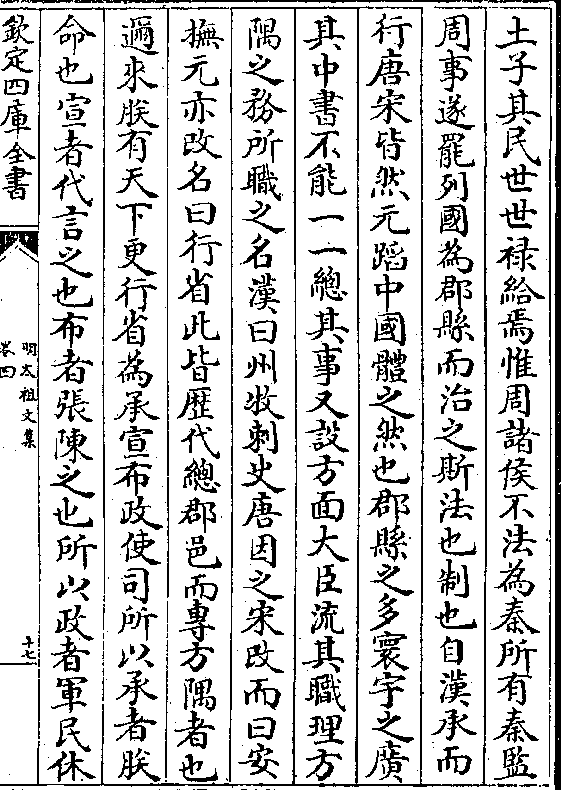 土子其民世世禄給焉惟周諸侯不法為秦所有秦監
周事遂罷列國為郡縣而治之斯法也制也自漢承而
行唐宋皆然元蹈中國體之然也郡縣之多寰宇之廣
其中書不能一一總其事又設方面大臣流其職理方
隅之務所職之名漢曰州牧刺史唐因之宋改而曰安
撫元亦改名曰行省此皆歴代總郡邑而専方隅者也
邇來朕有天下更行省為承宣布政使司所以承者朕
命也宣者代言之也布者張陳之也所以政者軍民休
欽定四庫全書
明太祖文集
卷四
十七